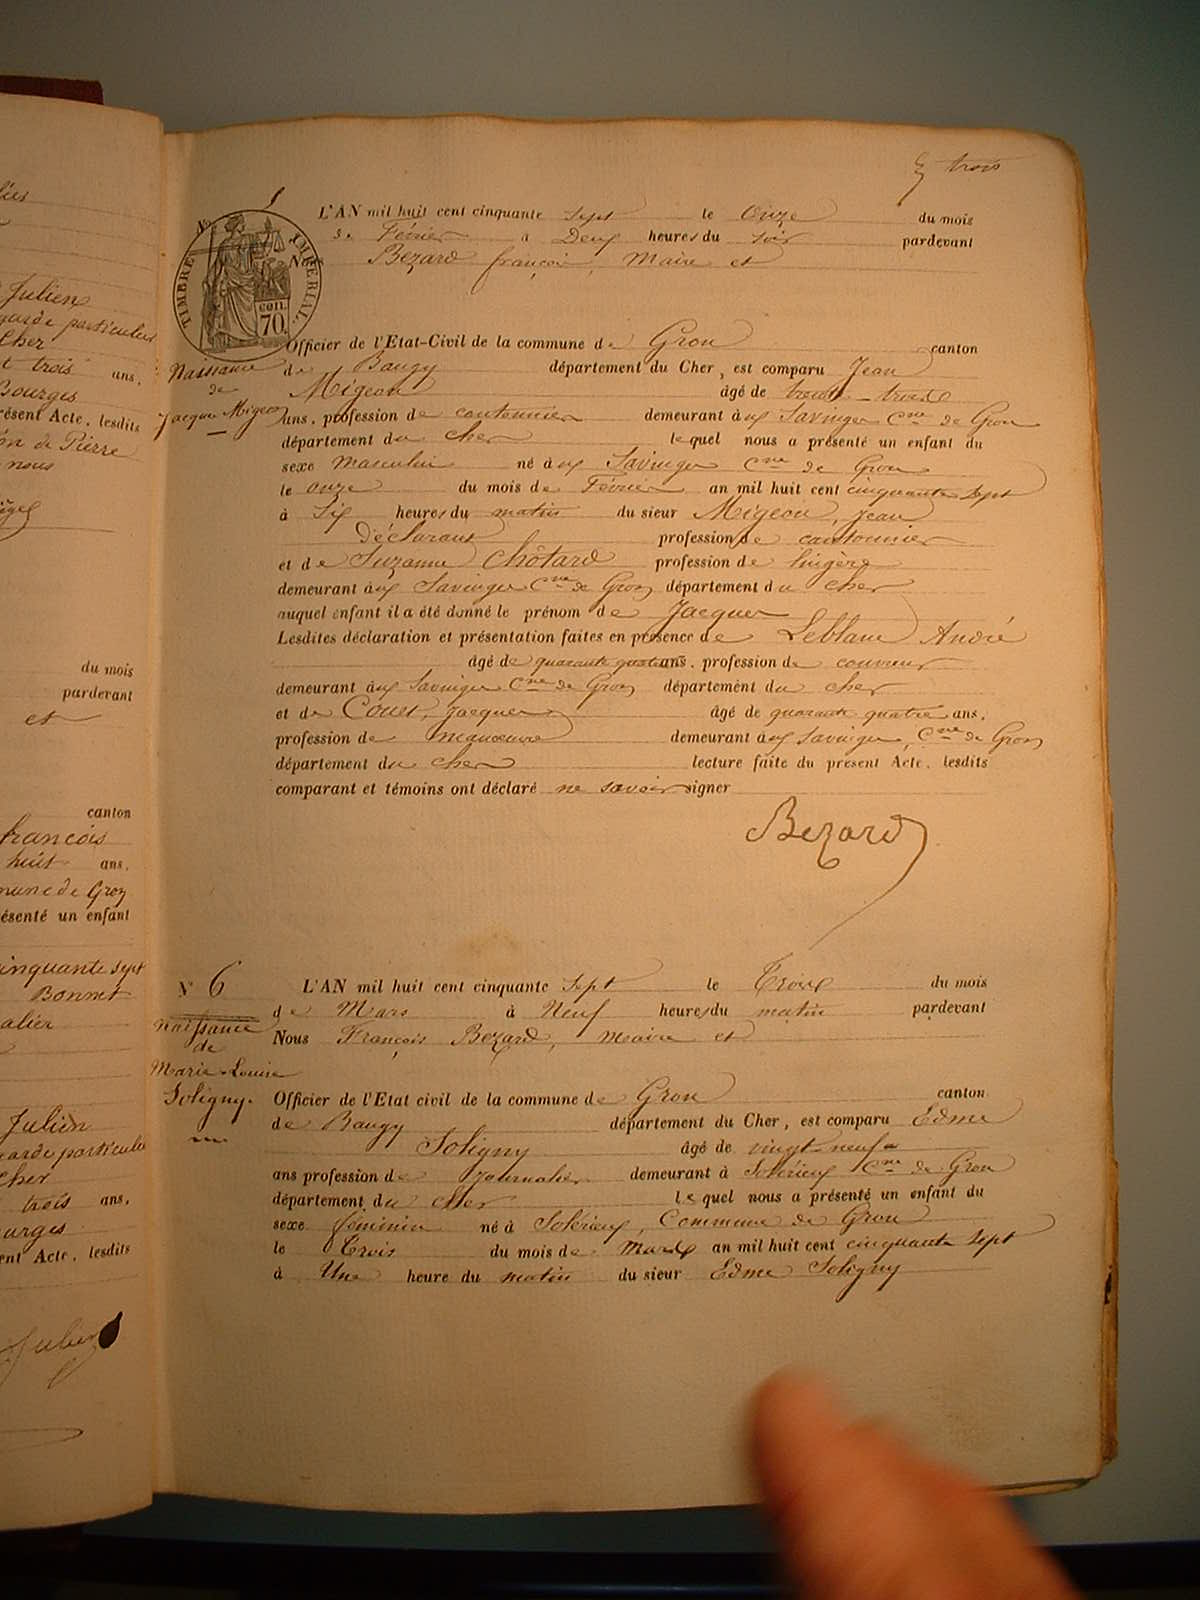 trois
5
L'AN mil huit cent cinquante sept le Onze du mois
de Février à Deux heures du soir pardevant
Bezard françois, Maire et
TIMBRE IMPERIAL
CEN. 70
Officier de l'Etat-Civil de la commune de Gron canton
Naissance de Jacques Migeon
de Baugy département du Cher, est comparu Jean
Migeon âgé de trente-trois
ans, profession de cantonnier demeurant aux Savinges Cne de Gron
département du Cher lequel nous a présenté un enfant du
sexe masculin né aux Savinges Cne de Gron
le onze du mois de Février an mil huit cent cinquante sept
à six heures du matin du sieur Migeon, Jean
déclarant profession de cantonnier
et de Suzanne Chôtard profession de lingère
demeurant aux Savinges Cne de Gron département du Cher
auquel enfant il a été donné le prénom de Jacques
Lesdites déclaration et présentation faites en présence de Leblanc André
âgé de quarante quatre ans, profession de couvreur
demeurant aux Savinges Cne de Gron département du Cher
et de Couet, Jacques âgé de quarante quatre ans,
profession de manoeuvre demeurant aux Savinges, Cne de Gron
département du Cher lecture faite du présent Acte, lesdits
comparant et témoins ont déclaré ne savoir signer
Bezard
N° 6
L'AN mil huit cent cinquante sept le Trois du mois
de Mars à Neuf heures du matin pardevant
Naissance de Marie-Louise Soligny.
Nous François Bezard, maire et
Officier de l'Etat civil de la commune de Gron canton
de Baugy département du Cher, est comparu Edme
Soligny âgé de vingt-neuf
ans profession de Journalier demeurant à Solérieux Cne de Gron
département du Cher lequel nous a présenté un enfant du
sexe féminin né à Solérieux, Commune de Gron
le Trois du mois de Mars an mil huit cent cinquante sept
à Une heure du matin du sieur Edme Soligny
Julien
garde particulier
Cher
trois ans,
Bourges
présent Acte, lesdits
de Pierre
nous
du mois
pardevant
et
canton
françois
huit ans,
commune de Gron
présenté un enfant
cinquante sept
Bonnet
Julien
garde particulier
Cher
trois ans,
Acte, lesdits
Julien